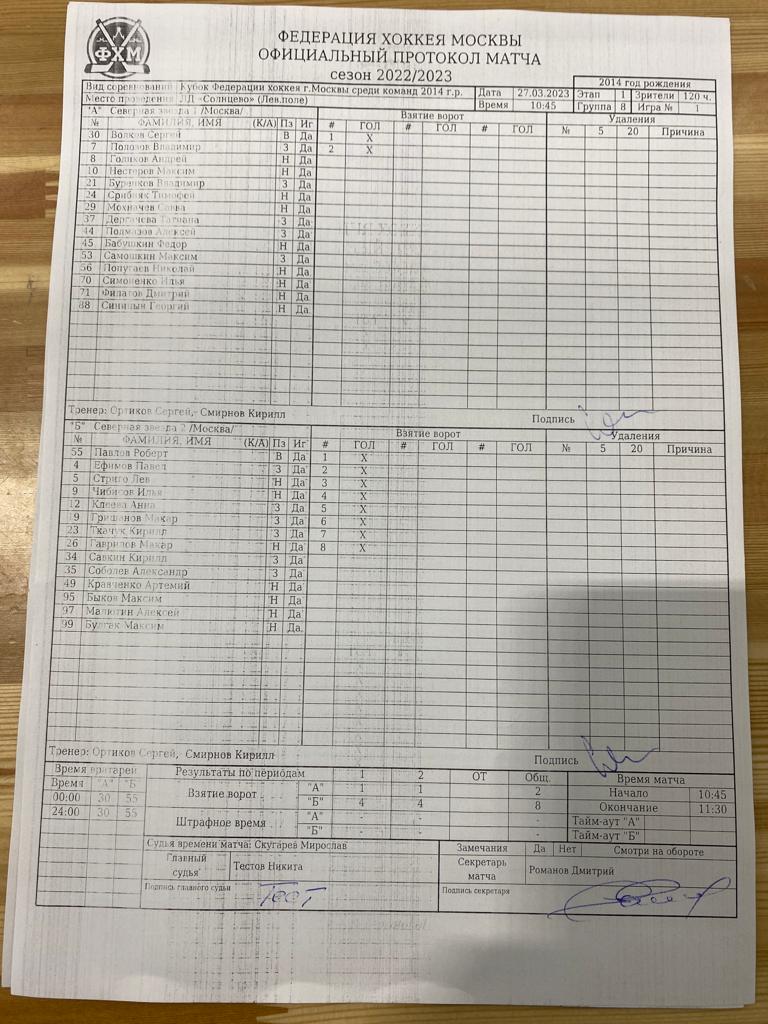 ФХМ
ФЕДЕРАЦИЯ ХОККЕЯ МОСКВЫ
ОФИЦИАЛЬНЫЙ ПРОТОКОЛ МАТЧА
сезон 2022/2023
2014 год рождения
Вид соревнований Кубок Федерации хоккея г.Москвы среди команд 2014 г.р. Дата 27.03.2023 Этап 1 Зрители 120 ч.
Место проведения ЛД «Солнцево» (Лев.поле) Время 10:45 Группа 8 Игра № 1
"А" Северная звезда 1 /Москва/ Взятие ворот Удаления
№ ФАМИЛИЯ, ИМЯ (К/А) Пз Иг # ГОЛ # ГОЛ # ГОЛ # ГОЛ № 5 20 Причина
30 Волков Сергей В Да 1 X
7 Полозов Владимир З Да 2 X
8 Голиков Андрей Н Да
10 Нестеров Максим Н Да
21 Буренков Владимир З Да
24 Срибняк Тимофей Н Да
29 Мохначев Савва Н Да
37 Дергачева Татиана З Да
44 Полмазов Алексей З Да
45 Бабушкин Федор Н Да
53 Самошкин Максим З Да
56 Попугаев Николай Н Да
70 Симоненко Илья Н Да
71 Филатов Дмитрий Н Да
88 Синицын Георгий Н Да
Тренер: Ортиков Сергей, Смирнов Кирилл Подпись
"Б" Северная звезда 2 /Москва/ Взятие ворот Удаления
№ ФАМИЛИЯ, ИМЯ (К/А) Пз Иг # ГОЛ # ГОЛ # ГОЛ # ГОЛ № 5 20 Причина
55 Павлов Роберт В Да 1 X
4 Ефимов Павел З Да 2 X
5 Стриго Лев Н Да 3 X
9 Чибисов Илья Н Да 4 X
12 Клеева Анна З Да 5 X
19 Гришанов Макар З Да 6 X
23 Ткачук Кирилл З Да 7 X
26 Гаврилов Макар Н Да 8 X
34 Савкин Кирилл З Да
35 Соболев Александр З Да
49 Кравченко Артемий Н Да
95 Быков Максим Н Да
97 Малютин Алексей Н Да
99 Булгак Максим Н Да
Тренер: Ортиков Сергей, Смирнов Кирилл Подпись
Время вратарей Результаты по периодам 1 2 ОТ Общ. Время матча
Время "А" "Б" Взятие ворот "А" 1 1 2 Начало 10:45
00:00 30 55 "Б" 4 4 8 Окончание 11:30
24:00 30 55 Штрафное время "А" - - - Тайм-аут "А"
"Б" - - - Тайм-аут "Б"
Судья времени матча: Скугарев Мирослав Замечания Да Нет Смотри на обороте
Главный судья Тестов Никита Секретарь матча Романов Дмитрий
Подпись главного судьи Тест Подпись секретаря